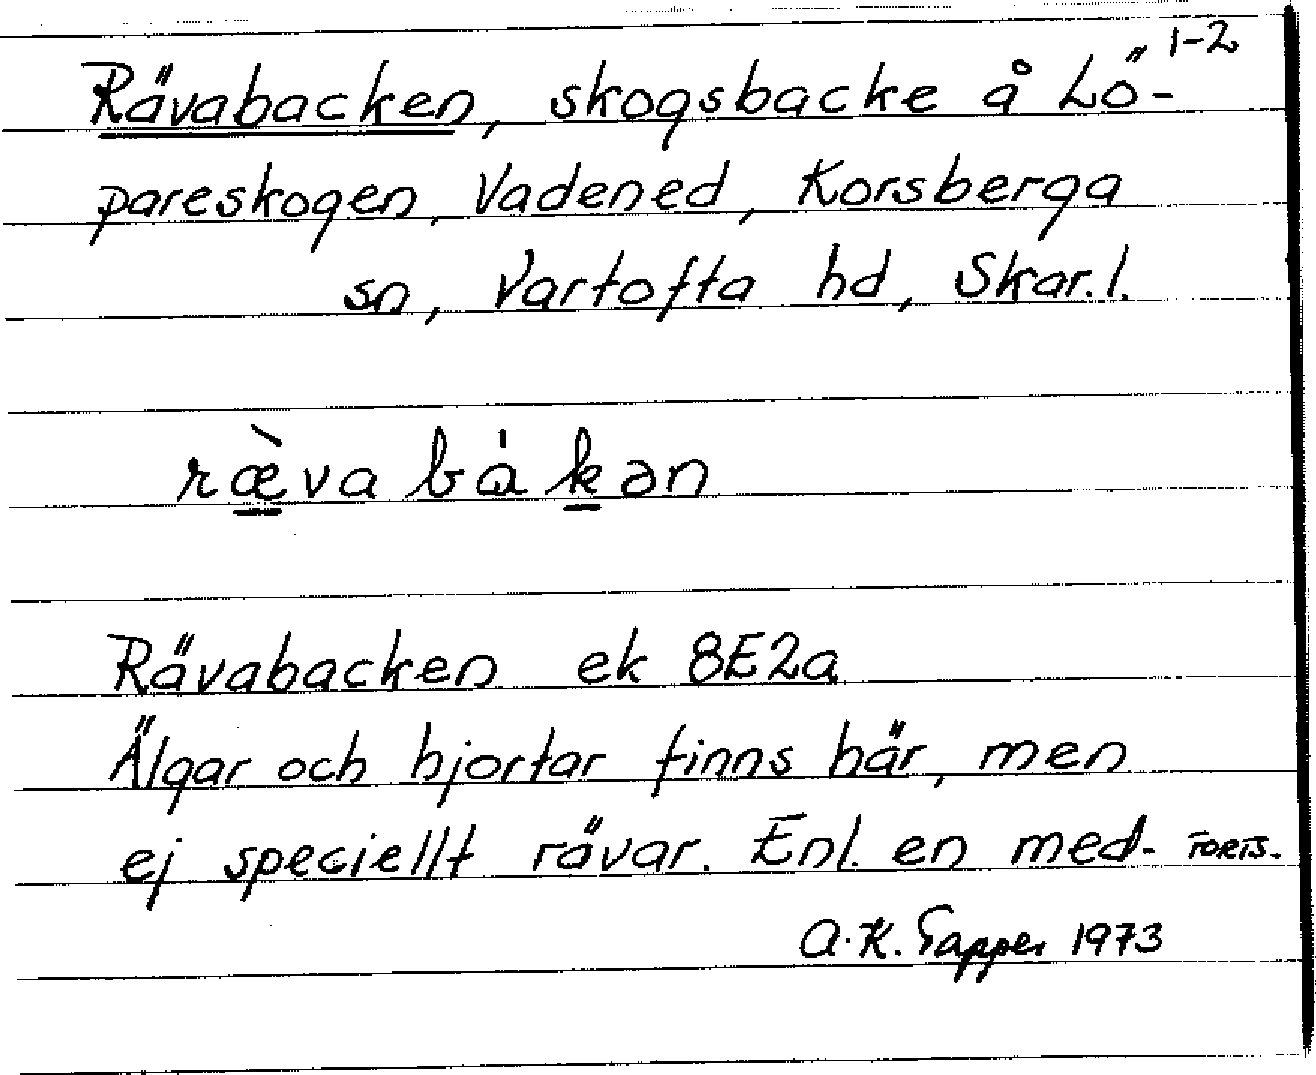 1-2
Rävabacken, skogsbacke å Lö-
pareskogen, Vadened, Korsberga
sn, Vartofta hd, Skar. l.
ræ̀va bákən
Rävabacken ek 8E2a
Älgar och hjortar finns här, men
ej speciellt rävar. Enl. en med- FORTS.
A.K. Tapper 1973